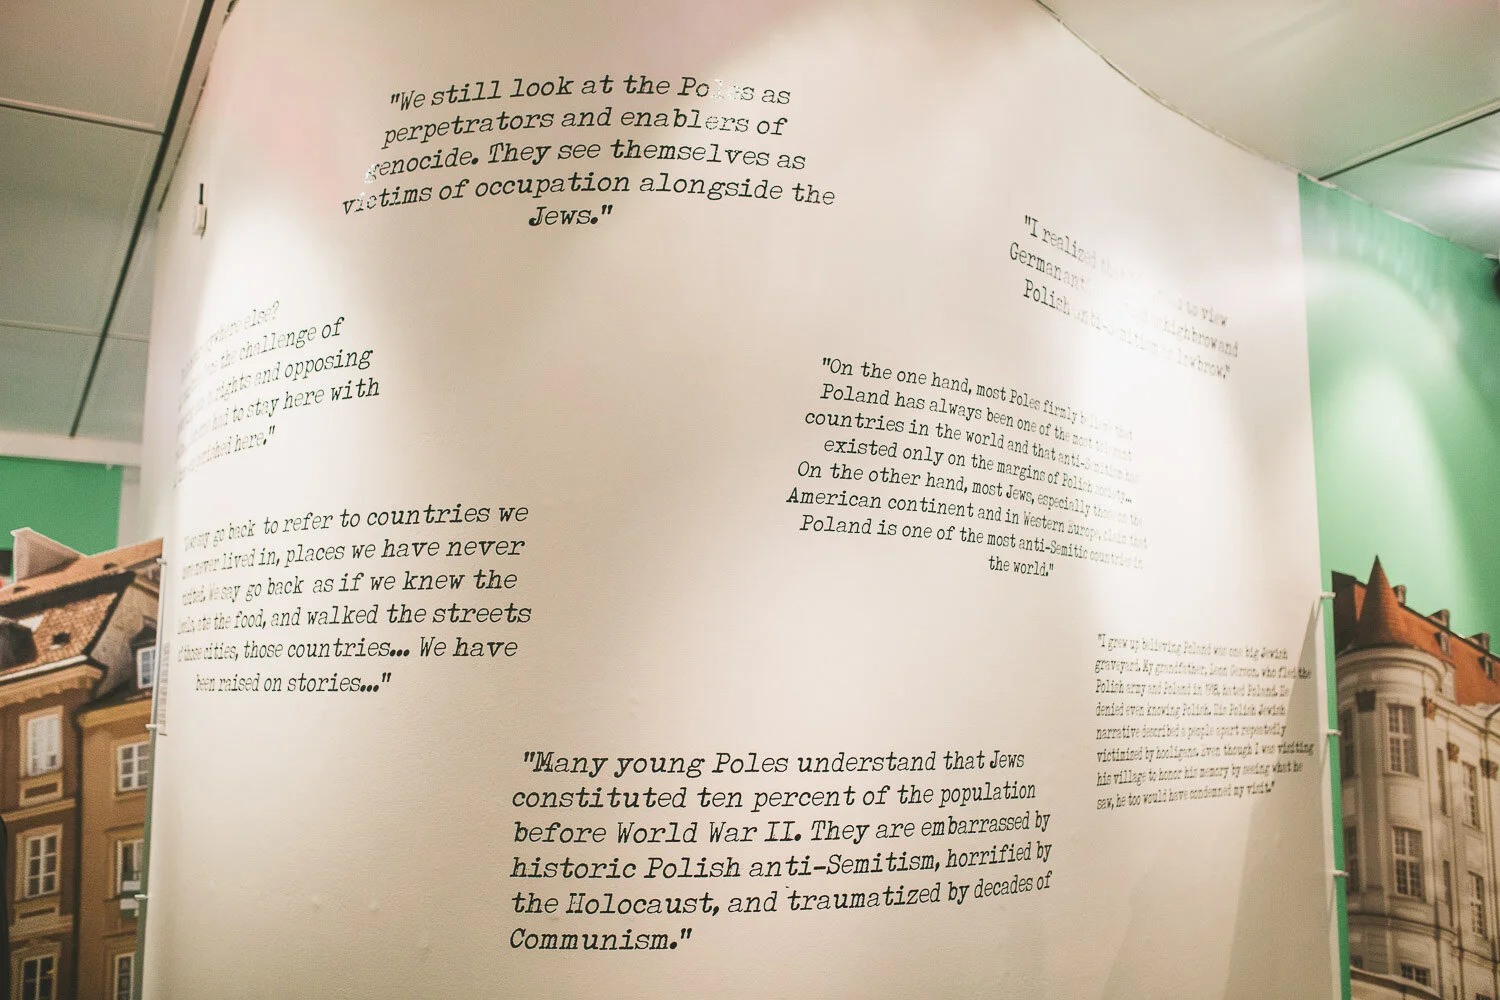 "We still look at the Poles as
perpetrators and enablers of
genocide. They see themselves as
victims of occupation alongside the
Jews."
else?
the challenge of
rights and opposing
and to stay here with
here."
go back to refer to countries we
never lived in, places we have never
We say go back as if we knew the
ate the food, and walked the streets
of those cities, those countries... We have
been raised on stories..."
"I realized to view
German highbrow and
Polish anti-Semitism as lowbrow."
"On the one hand, most Poles firmly believe that
Poland has always been one of the most tolerant
countries in the world and that anti-Semitism has
existed only on the margins of Polish society...
On the other hand, most Jews, especially those on the
American continent and in Western Europe, claim that
Poland is one of the most anti-Semitic countries in
the world."
"I grew up believing Poland was one big Jewish
graveyard. My grandfather, Leon Gerson, who fled the
Polish army and Poland in 1918, hated Poland. He
denied even knowing Polish. His Polish Jewish
narrative described a people apart repeatedly
victimized by hooligans. Even though I was visiting
his village to honor his memory by seeing what he
saw, he too would have condemned my visit."
"Many young Poles understand that Jews
constituted ten percent of the population
before World War II. They are embarrassed by
historic Polish anti-Semitism, horrified by
the Holocaust, and traumatized by decades of
Communism."